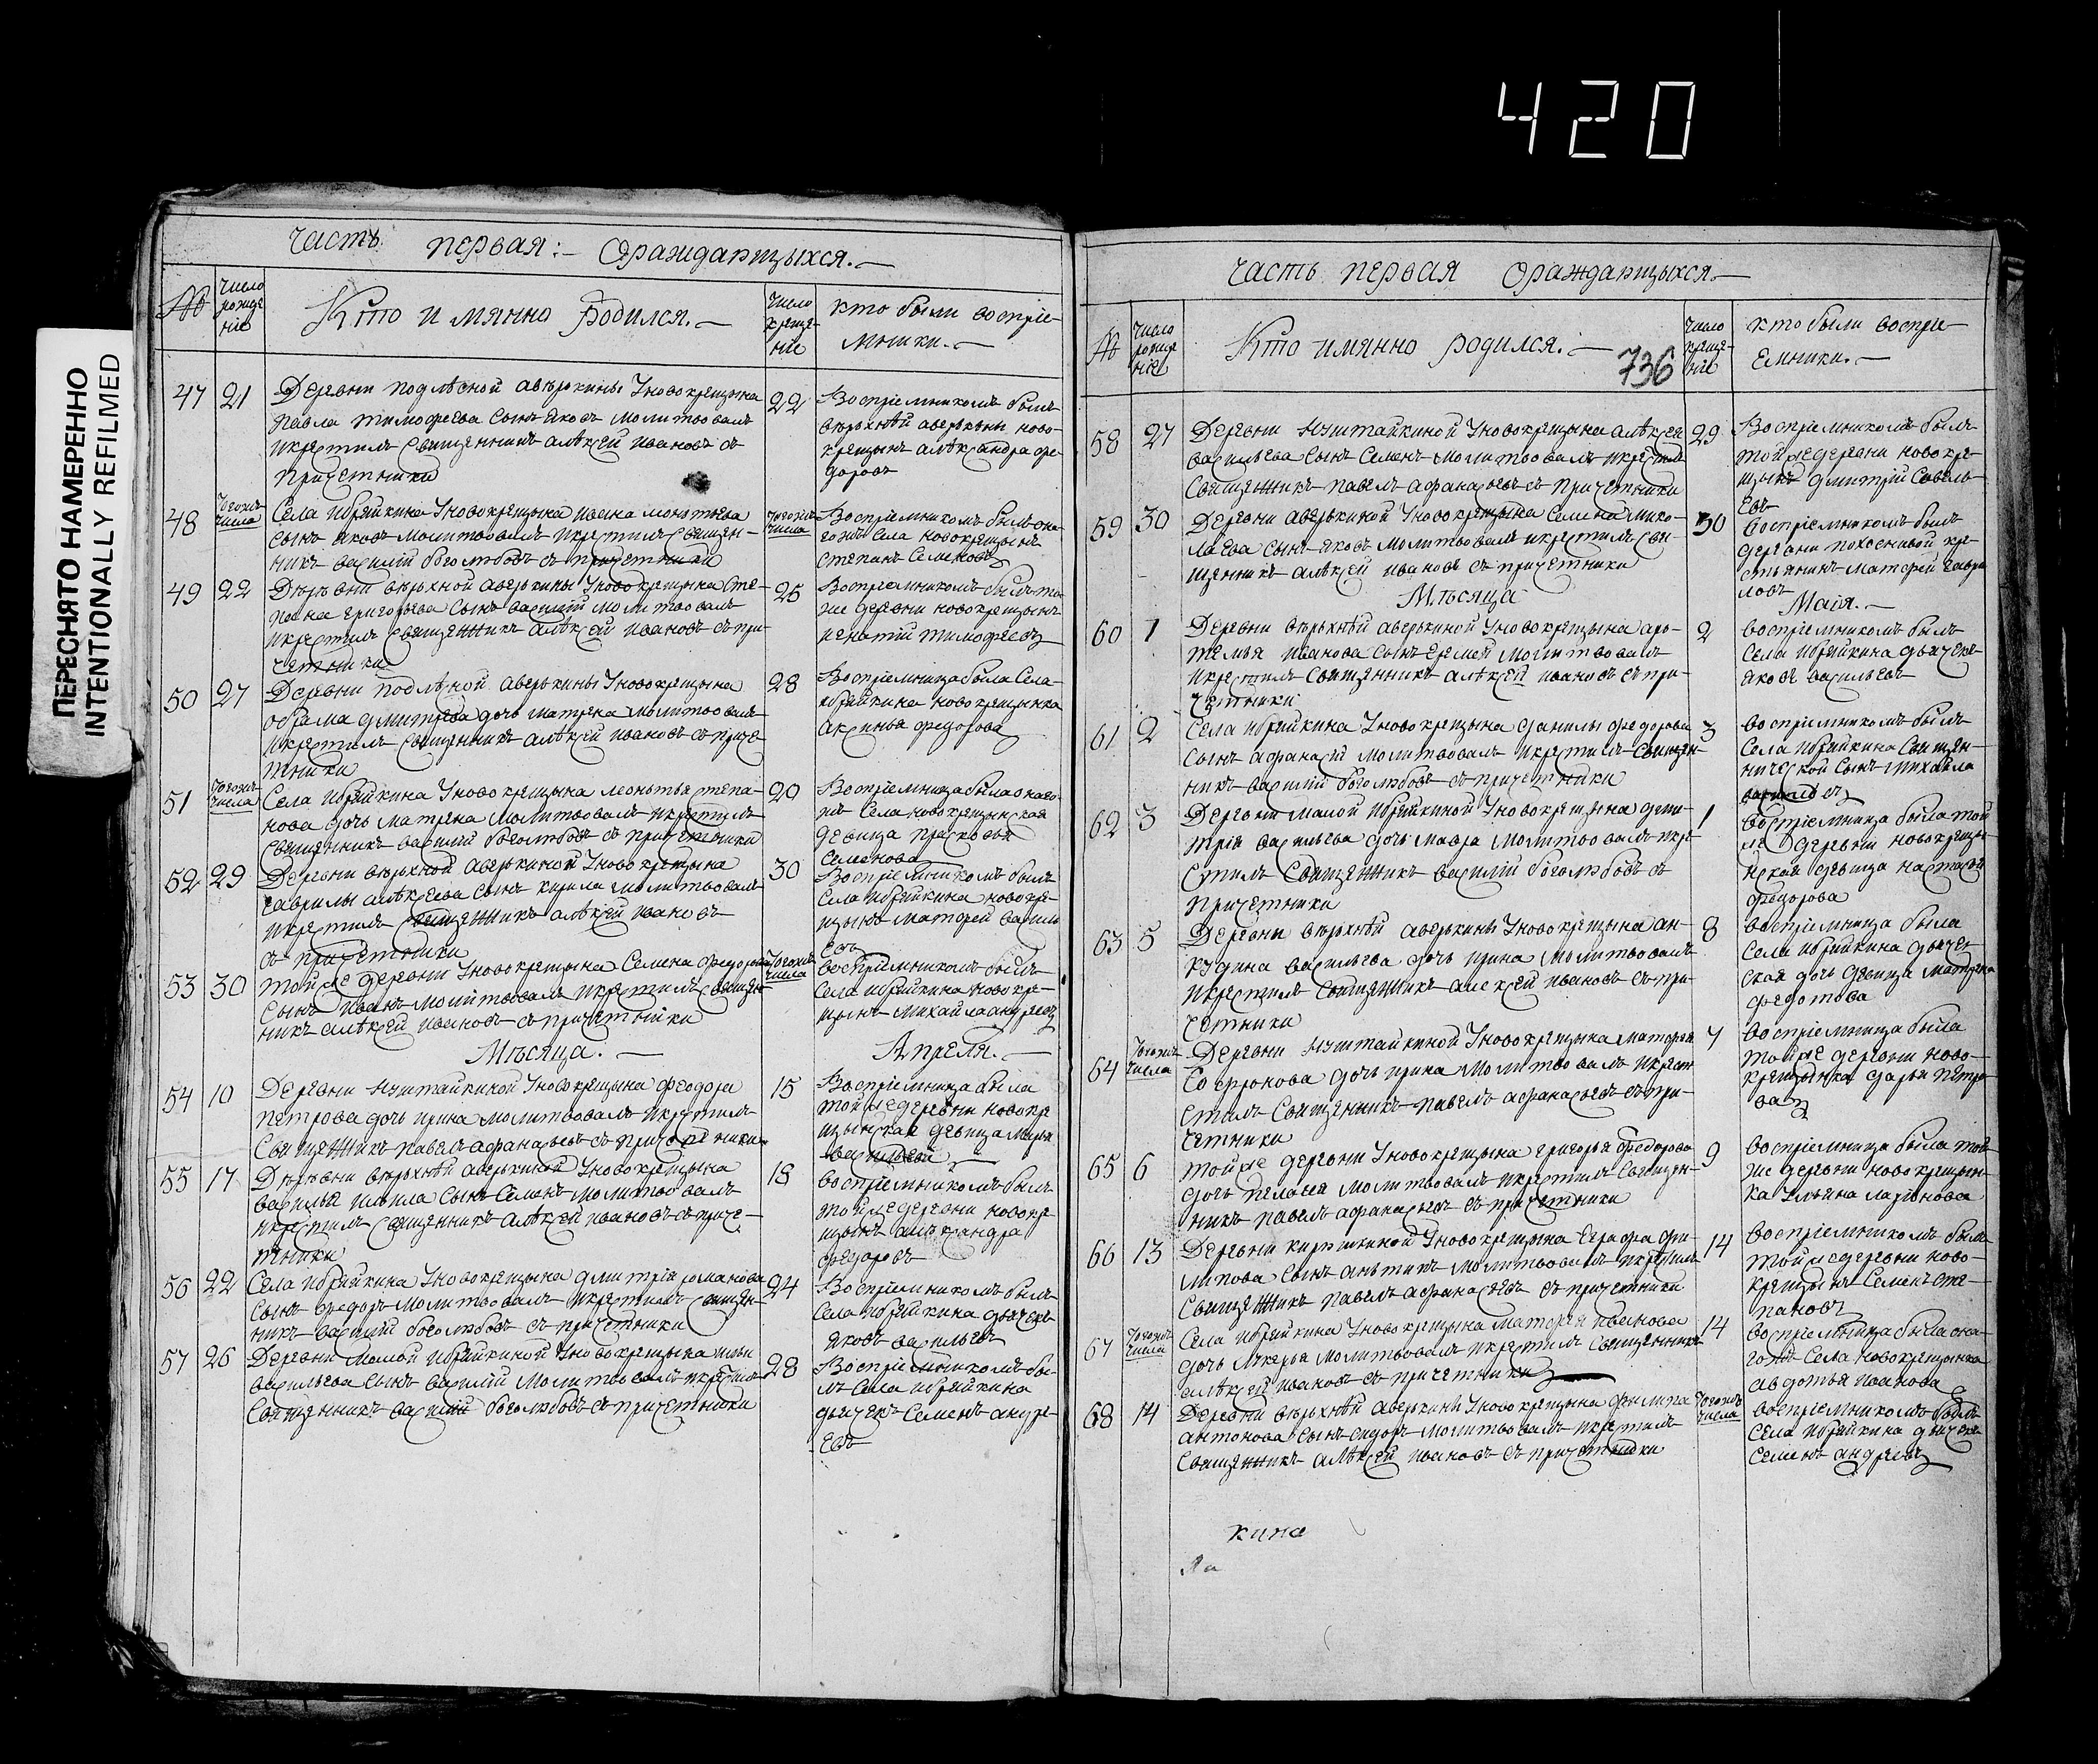 420
ПЕРЕСНЯТО НАМЕРЕННО
INTENTIONALLY REFILMED
Часть первая:– Ораждающыхся.–
№
Число рожде ніе
Кто и мянно родился.–
Число креще- ніе
кто были воспріе-
мники.–
47 21
Деревни подлѣсной авѣркины Уновокрещына
Павла тимофеева сынъ яковъ молитвовалъ
икрестилъ священникъ алѣксей ивановъ съ
причетники
22
Воспріемникомъ былъ
вѣрхнѣй аверькины ново-
крещынъ алѣксандра фе-
доровъ
48 Тогожъ числа
Села ибряйкина Уновокрещына ивана
сынъ яковъ молитвовалъ икрестилъ священ-
никъ василій боголюбовъ съ причетники
Тогожъ числа
Воспріемникомъ былъ она-
гожъ села новокрещынъ
степанъ семеновъ
49 22
Дѣрѣвни вѣрхной аверькины Уновокрещына сте-
пана григорьева сынъ василій молитвовалъ
икрестилъ священникъ алѣксей ивановъ съ при-
четники
25
Воспріемникомъ былъ то
же деревни новокрещынъ
игнатій тимофеевъ
50 27
Деревни подлѣсной аверькины Уновокрещына
абрама дмитрева дочь матрена молитвовалъ
икрестилъ священникъ алѣксей ивановъ съ приче
тники
28
Воспріемница была села
ибряйкина новокрещынка
аксинья федорова
51 Тогожъ числа
Села ибряйкина Уновокрещына леонтья степа-
нова дочь матрена молитвовалъ икрестилъ
священникъ василій боголюбовъ съ причетники
29
Воспріемница была онаго-
жъ села новокрещынская
девица прасковья
семенова
52 29
Деревни вѣрхной аверькиной Уновокрещына
гаврилы алѣксеева сынъ кирила молитвовалъ
икрестилъ священникъ алѣксей ивановъ
съ причетники
30
Воспріемникомъ былъ
села ибряйкина новокре-
щынъ матфей василь
евъ
53 30
тойже деревни Уновокрещына семена федорова
сынъ иванъ молитвовалъ икрестилъ священ
никъ алѣксей ивановъ съ причетники
Тогожъ числа
воспріемникомъ былъ
села ибряйкина новокре-
щынъ михайла андреевъ
Мѣсяца.– Апреля.–
54 10
Деревни нуштайкиной Уновокрещына феодора
петрова дочь ирина молитвовалъ икрестилъ
священникъ павелъ афанасьевъ съ причетники
15
Воспріемница была
тойже деревни новокре
щынская девица марья
васильева
55 17
Дѣрѣвни вѣрхнѣй аверькиной Уновокрещына
василья сынъ семенъ молитвовалъ
икрестилъ священникъ алѣксей ивановъ съ приче-
тники
18
воспріемникомъ былъ
тойже деревни новокре
щынъ алѣксандра
федоровъ
56 22
Села ибряйкина Уновокрещына дмитрія романова
сынъ федоръ молитвовалъ икрестилъ священ-
никъ василій боголюбовъ съ причетники
24
Воспріемникомъ былъ
села ибряйкина дьячекъ
яковъ васильевъ
57 26
Деревни малой ибряйкиной Уновокрещына ильи
васильева сынъ василій молитвовалъ икрестилъ
священникъ василій боголюбовъ съ причетники
28
Воспріемникомъ бы-
лъ села ибряйкина
дьячекъ семенъ андре-
евъ
Часть первая Ораждающыхся.–
№
Число рожде ніе
Кто имянно родился.–
736
Число креще- ніе
кто были воспріе-
емники.–
58 27
Деревни нуштайкиной Уновокрещына алѣксея
васильева сынъ семенъ молитвовалъ икрестилъ
священникъ павелъ афанасьевъ съ причетники
29
Воспріемникомъ былъ
тойже деревни новокре-
щынъ дмитрій савель-
евъ
59 30
Деревни аверькиной Уновокрещына семена нико-
лаева сынъ яковъ молитвовалъ икрестилъ свя-
щенникъ алѣксей ивановъ съ причетники
30
воспріемникомъ былъ
деревни кре-
стьянинъ матфей гаври
ловъ
Мѣсяца Маія.–
60 1
Деревни вѣрхнѣй аверькиной Уновокрещына ар-
темья иванова сынъ еремей молитвовалъ
икрестилъ священникъ алѣксей ивановъ съ при-
четники
2
воспріемникомъ былъ
села ибряйкина дьячекъ
яковъ васильевъ
61 2
Села ибряйкина Уновокрещына данилы федорова
сынъ афанасій молитвовалъ икрестилъ священ
никъ василій боголюбовъ съ причетники
3
воспріемникомъ былъ
села ибряйкина священ-
нической сынъ михайла
васильевъ
62 3
Деревни малой ибряйкиной Уновокрещына дми-
трія васильева дочь мавра молитвовалъ икре-
стилъ священникъ василій боголюбовъ съ
причетники
1
воспріемница была той
же деревни новокрещы-
нская девица настасья
федорова
63 5
Деревни вѣрхнѣй аверькины Уновокрещына ан-
кудина васильева дочь ирина молитвовалъ
икрестилъ священникъ алексей ивановъ съ при-
четники
8
воспріемница была
села ибряйкина дьячев
ская дочь девица матрена
федотова
64 Тогожъ числа
Деревни нуштайкиной Уновокрещына матфея
софронова дочь ирина молитвовалъ икрест
стилъ священникъ павелъ афанасьевъ съ при-
четники
7
воспріемница была
тойже деревни ново-
крещынка дарья петро
ва
65 6
тойже деревни Уновокрещына григорья федорова
дочь пелагея молитвовалъ икрестилъ священ-
никъ павелъ афанасьевъ съ причетники
9
воспріемница была той
же деревни новокрещын-
ка ульяна ларионова
66 13
Деревни Уновокрещына фи-
липова сынъ антипъ молитвовалъ икрестилъ
священникъ павелъ афанасьевъ съ причетники
14
воспріемникомъ былъ
тойже деревни ново-
крещынъ семенъ сте-
пановъ
67 Тогожъ числа
Села ибряйкина Уновокрещына матфея иванова
дочь лукерья молитвовалъ икрестилъ священникъ
алѣксей ивановъ съ причетники
14
воспріемница была она-
гожъ села новокрещынка
авдотья иванова
68 14
Деревни вѣрхнѣй аверкины Уновокрещына филипа
антонова сынъ сидоръ молитвовалъ икрестилъ
священникъ алѣксей ивановъ съ причетники
Тогожъ числа
воспріемникомъ былъ
села ибряйкина дьячекъ
семенъ андреевъ
кина